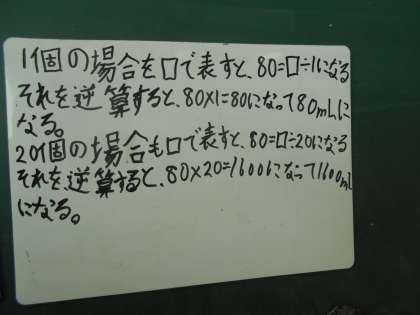 1個の場合を□で表すと、80=□÷1になる
それを逆算すると、80×1=80になって80mLに
なる。
20個の場合も□で表すと、80=□÷20になる
それを逆算すると、80×20=1600になって1600mL
になる。